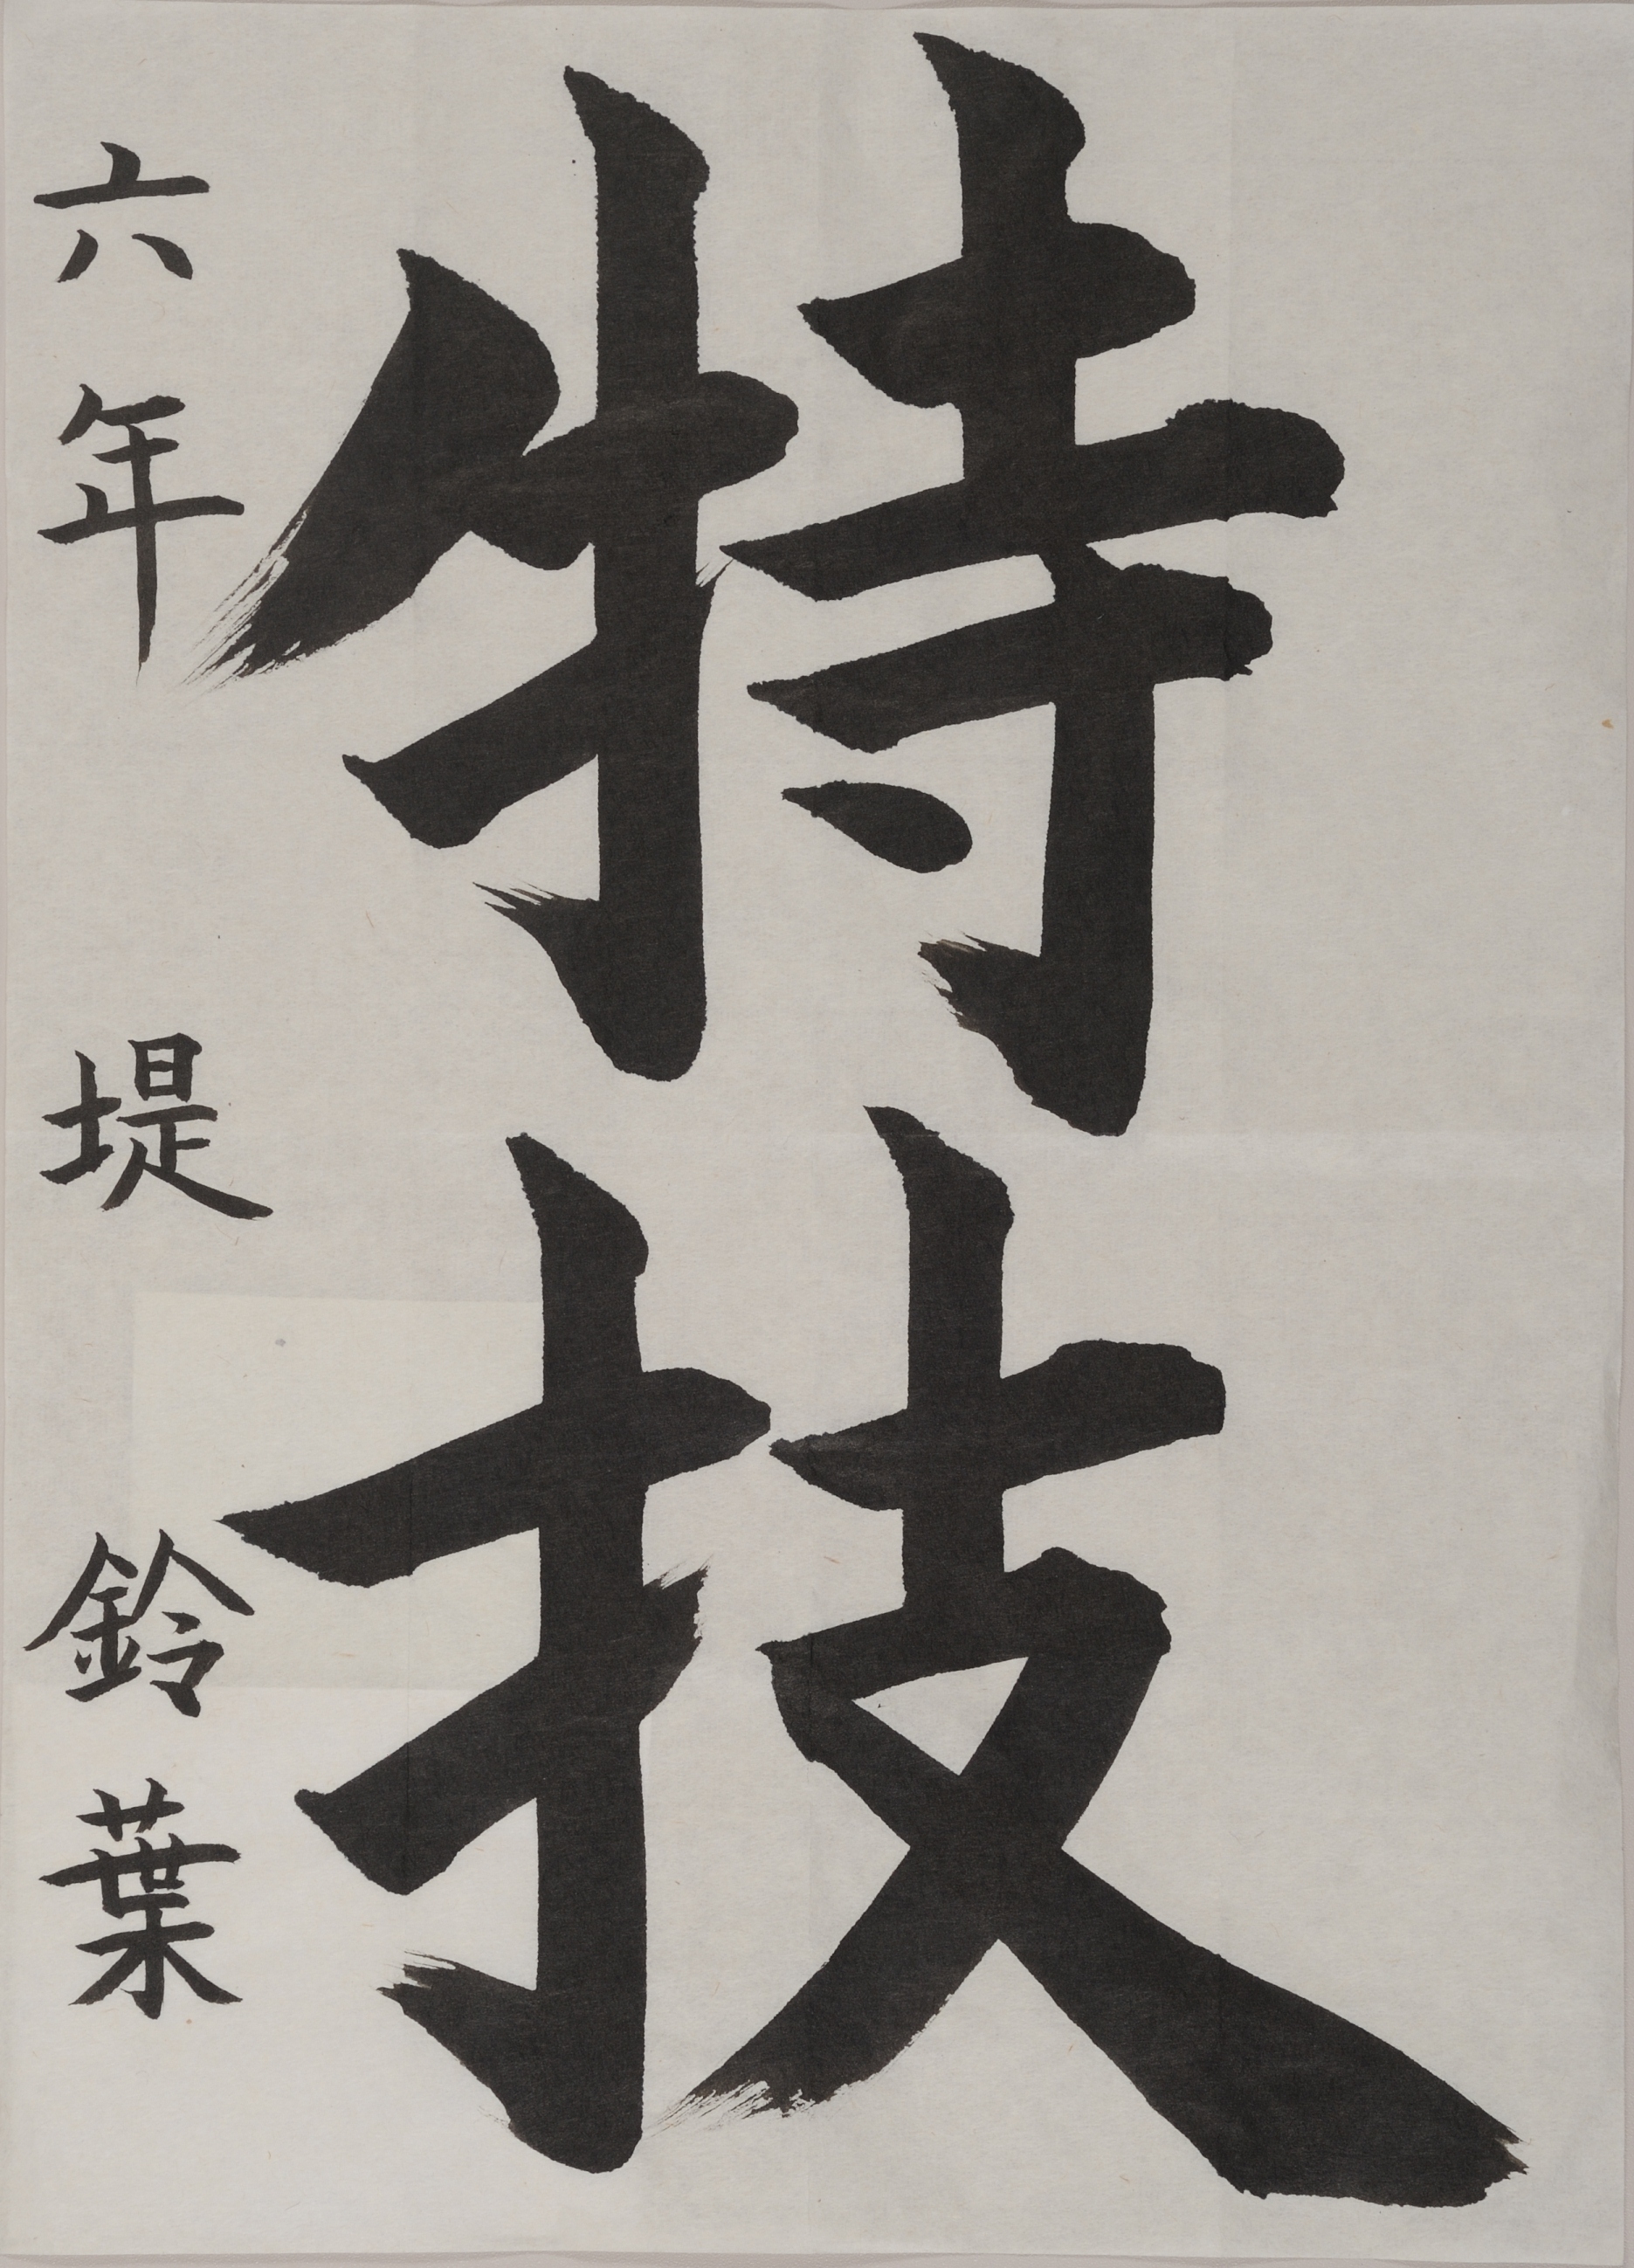 特技
六年 堤 鈴葉